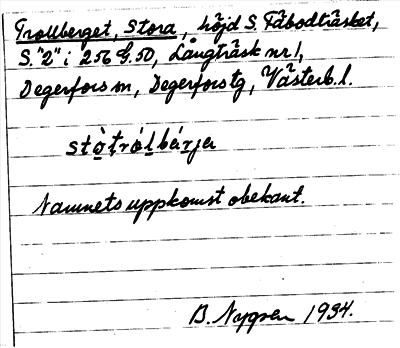 Trollberget, Stora, höjd S. Fäbodträsket,
S. "2" i 256 G. 50, Långträsk nr 1,
Degerfors sn, Degerfors tg, Västerb. l.
stò̱ṭrólbárja
Namnets uppkomst obekant.
B. Nygren 1934.